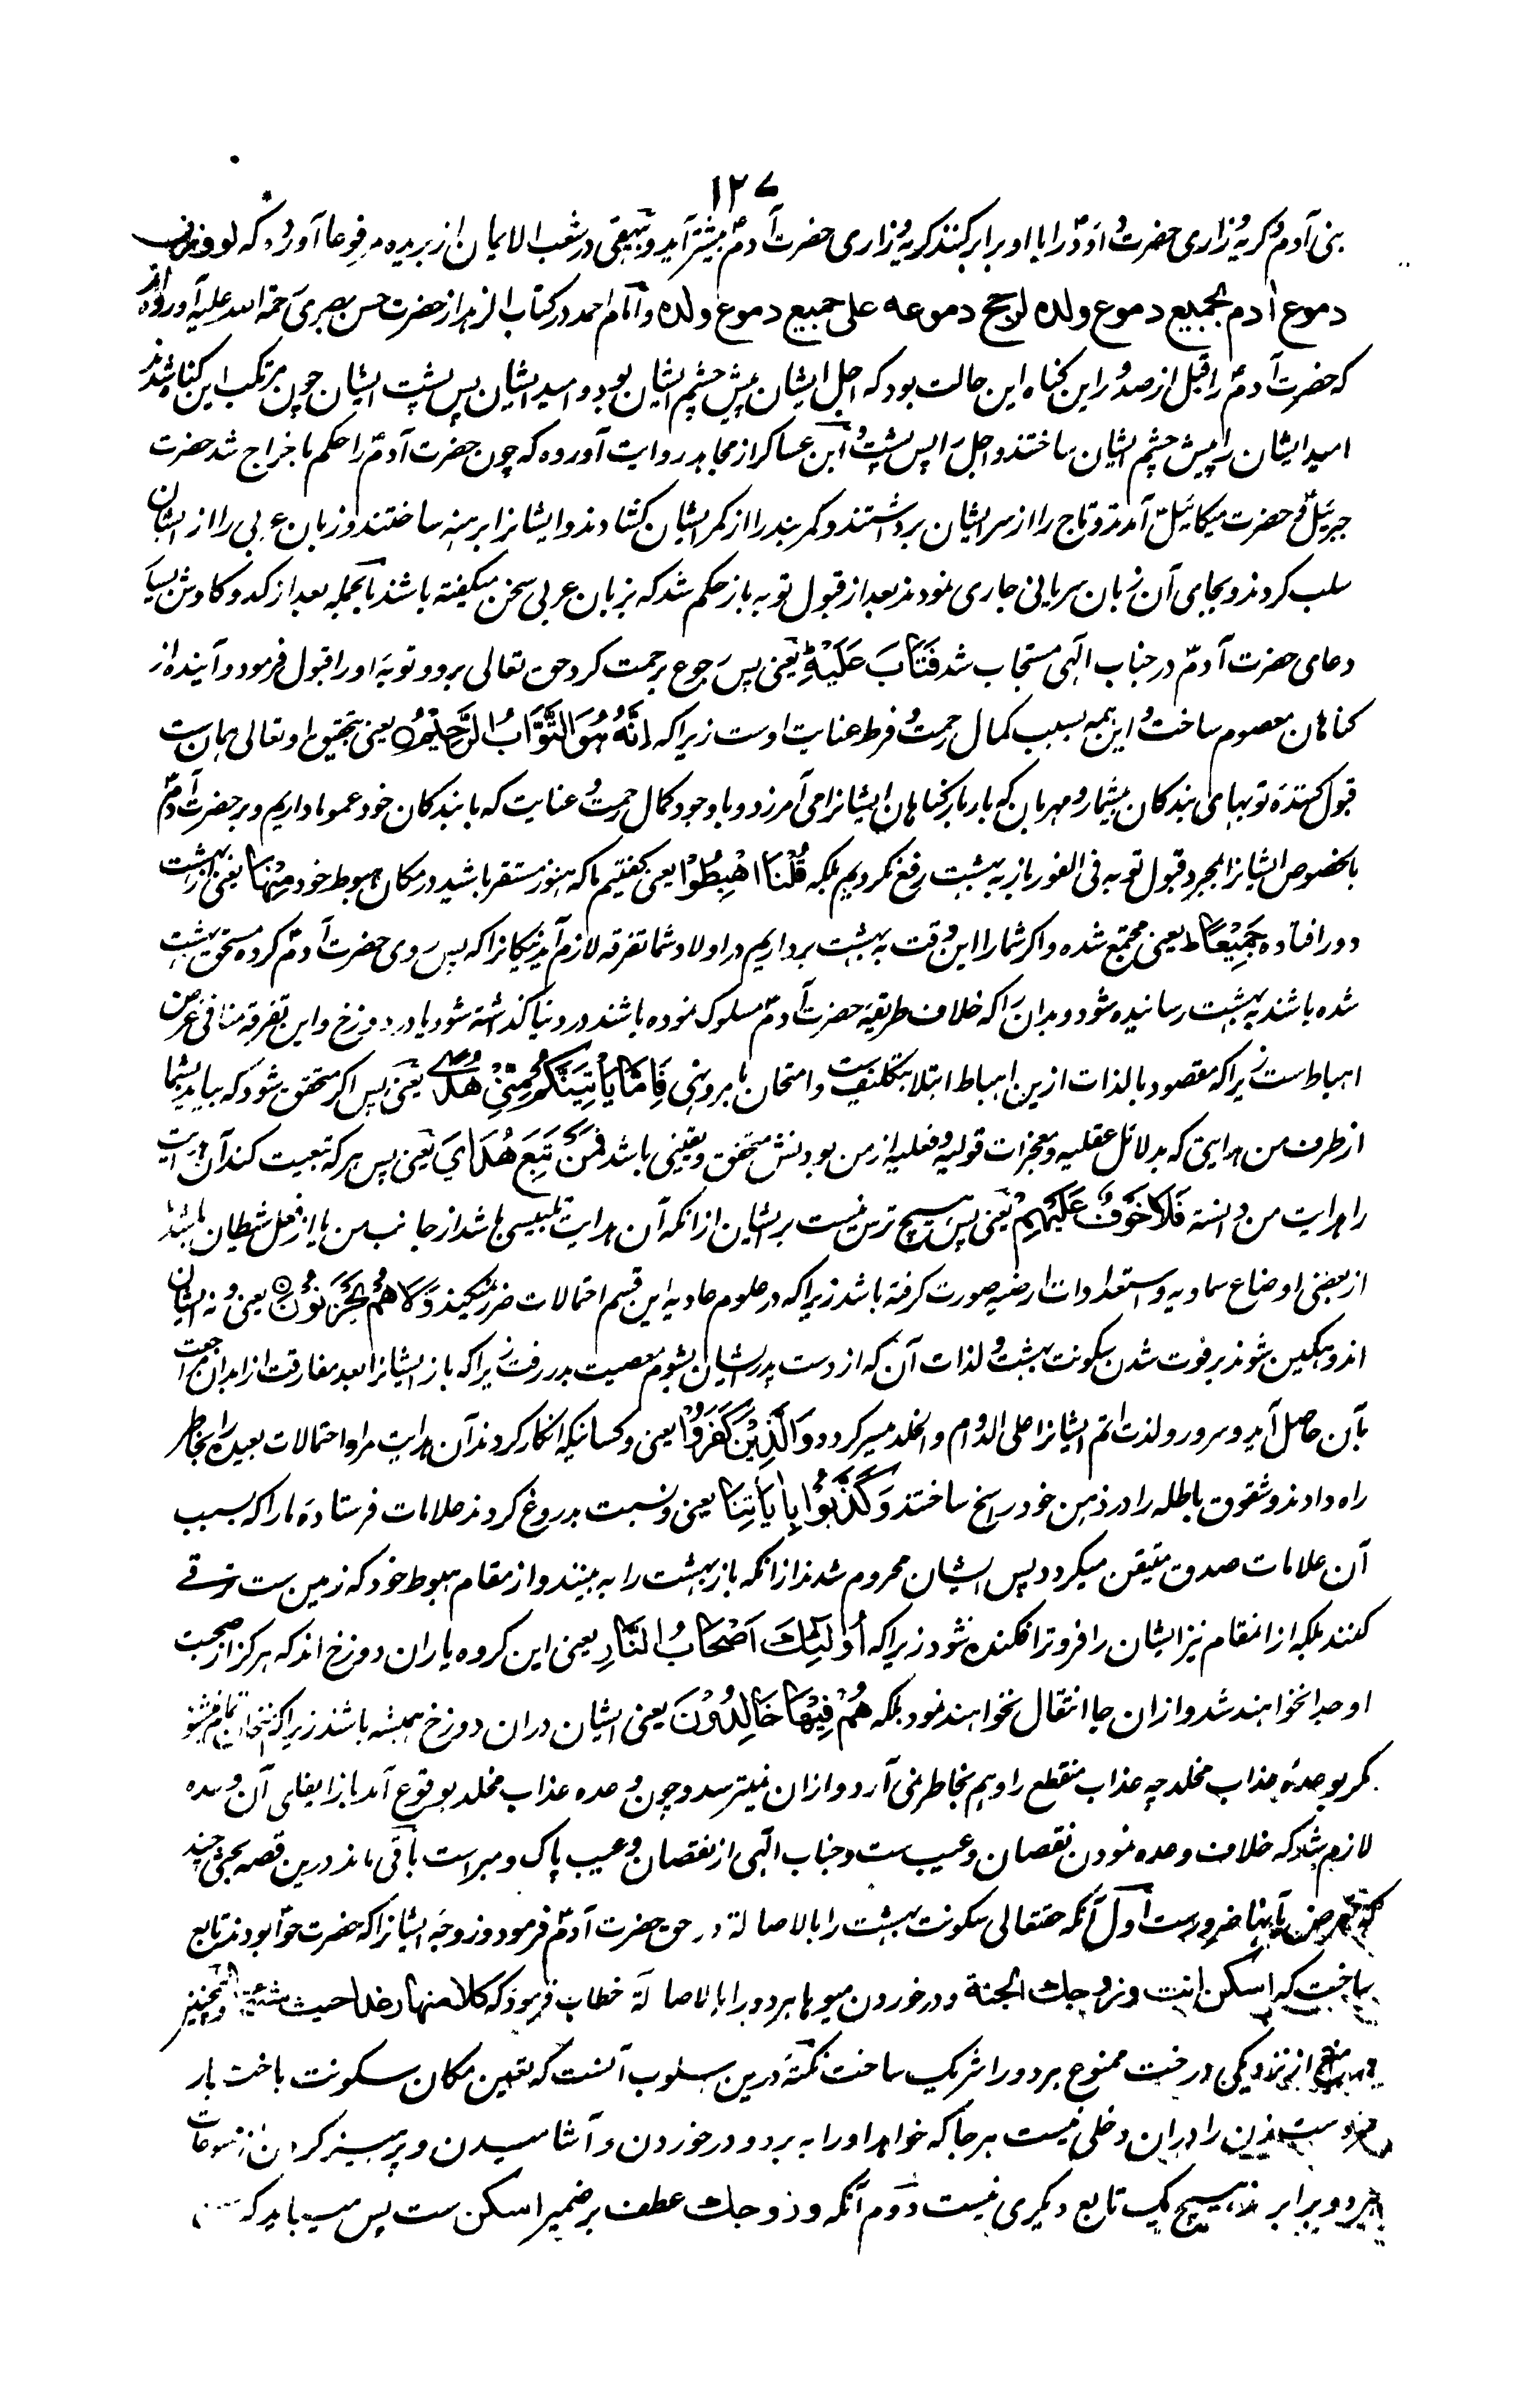 ۱۲۷
بنی آدم و گریه و زاری حضرت داؤد را با او برابر کنند گریه و زاری حضرت آدم بیشتر آید و بیهقی در شعب الایمان از بریده مرفوعا آورده که لو وزنت
دموع آدم بجمیع دموع ولده لرجح دموعه علی جمیع دموع ولده و امام احمد در کتاب الزهد از حضرت حسن بصری رحمة الله علیه آورده اند
که حضرت آدم را قبل از صدور این گناه این حالت بود که اجل ایشان پیش چشم ایشان بود و امید ایشان پس پشت ایشان چون مرتکب این گناه شدند
امید ایشان را پیش چشم ایشان ساختند و اجل را پس پشت و ابن عساکر از مجاهد روایت آورده که چون حضرت آدم را حکم باخراج شد حضرت
جبرئیل و حضرت میکائیل آمدند و تاج را از سر ایشان برداشتند و کمربند را از کمر ایشان کشادند و ایشانرا برهنه ساختند و زبان عربی را از ایشان
سلب کردند و بجای آن زبان سریانی جاری نمودند بعد از قبول توبه باز حکم شد که بزبان عربی سخن میگفته باشند بالجمله بعد از کد و کاوش بسیار
دعای حضرت آدم در جناب الهی مستجاب شد فَتَابَ عَلَیْهِ یعنی پس رجوع برحمت کرد حق تعالی برو و توبه او را قبول فرمود و آینده از
گناهان معصوم ساخت و این همه بسبب کمال رحمت و فرط عنایت اوست زیرا که اِنَّهُ هُوَ التَّوَّابُ الرَّحِیْمُ یعنی بتحقیق او تعالی همان ست
قبول کننده توبهای بندگان بیشمار و مهربان که بار بار گناهان ایشانرا می آمرزد و باوجود کمال رحمت و عنایت که با بندگان خود عموما داریم و بر حضرت آدم
بالخصوص ایشانرا بمجرد قبول توبه فی الفور باز به بهشت رفع نکردیم بلکه قُلْنَا اهْبِطُوْا یعنی گفتیم ما که هنوز مستقر باشید در مکان هبوط خود مِنْهَا یعنی از بهشت
دور افتاده جَمِیْعًا یعنی مجتمع شده و اگر شما را این وقت به بهشت برداریم در اولاد شما تفرقه لازم آید نیکانرا که پس روی حضرت آدم کرده مستحق بهشت
شده باشند به بهشت رسانیده شود و بدانرا که خلاف طریقه حضرت آدم مسلوک نموده باشند در دنیا گذاشته شود یا در دوزخ و این تفرقه منافی غرض
اهباط ست زیرا که مقصود بالذات ازین اهباط ابتلا بتکلیف ست و امتحان بامر و نهی فَاِمَّا یَاْتِیَنَّکُمْ مِنِّیْ هُدًی یعنی پس اگر متحقق شود که بیاید بشما
از طرف من هدایتی که بدلائل عقلیه و معجزات قولیه و فعلیه از من بودنش متحقق و یقینی باشد فَمَنْ تَبِعَ هُدَایَ یعنی پس هر که تبعیت کند آن هدایت
را هدایت من دانسته فَلَا خَوْفٌ عَلَیْهِمْ یعنی پس هیچ ترس نیست بر ایشان ازانکه آن هدایت تلبیسی باشد از جانب من یا از فعل شیطان باشد یا
از بعضی اوضاع سماویه و استعدادات ارضیه صورت گرفته باشد زیرا که در علوم عادیه این قسم احتمالات ضرر نمیکنند وَلَا هُمْ یَحْزَنُوْنَ یعنی و نه ایشان
اندوهگین شوند بر فوت شدن سکونت بهشت و لذات آن که از دست پدر ایشان بشوم معصیت بدر رفت زیرا که باز ایشانرا بعد مفارقت از ابدان مراجعت
بآن حاصل آید و سرور و لذت اتم ایشانرا علی الدوام والخلد میسر گردد وَالَّذِیْنَ کَفَرُوْا یعنی و کسانیکه انکار کردند آن هدایت مرا و احتمالات بعیده را بخاطر
راه دادند و شقوق باطله را در ذهن خود راسخ ساختند وَکَذَّبُوْا بِاٰیَاتِنَا یعنی و نسبت بدروغ کردند علامات فرستاده ما را که بسبب
آن علامات صدق متیقن میگردد پس ایشان محروم شدند ازانکه باز بهشت را به بینند و از مقام هبوط خود که زمین ست ترقی
کنند بلکه ازانمقام نیز ایشان را فروتر افکنده شود زیرا که اُولٰٓئِکَ اَصْحَابُ النَّارِ یعنی این گروه یاران دوزخ اند که هرگز از صحبت
او جدا نخواهند شد و ازان جا انتقال نخواهند نمود بلکه هُمْ فِیْهَا خَالِدُوْنَ یعنی ایشان دران دوزخ همیشه باشند زیرا که
مگر بوعده عذاب مخلد چه عذاب منقطع را وهم بخاطر نمی آرد و ازان نمیترسد و چون وعده عذاب مخلد بوقوع آمد باز ایفای آن وعده
لازم شد که خلاف وعده نمودن نقصان و عیب ست و جناب الهی از نقصان و عیب پاک و مبراست باقی ماند درین قصه بحثی چند
که تعرض بآنها ضرورست اول آنکه حقتعالی سکونت بهشت را بالاصالة در حق حضرت آدم فرمود و زوجه ایشانرا که حضرت حوا بودند تابع
ساخت که اسکن انت وزوجک الجنة و در خوردن میوها هر دو را بالاصالة خطاب فرمود که کلا منها رغدا حیث شئتما و همچنین
در منع از نزدیکی درخت ممنوع هر دو را شریک ساخت نکته درین اسلوب آنست که تعین مکان سکونت باختیار
مرد ست زن را دران دخلی نیست هر جا که خواهد او را به برد و در خوردن و آشامیدن و پرهیز کردن از ممنوعات
هر دو برابر اند هیچ یک تابع دیگری نیست دوم آنکه و زوجک عطف بر ضمیر اسکن ست پس میباید که